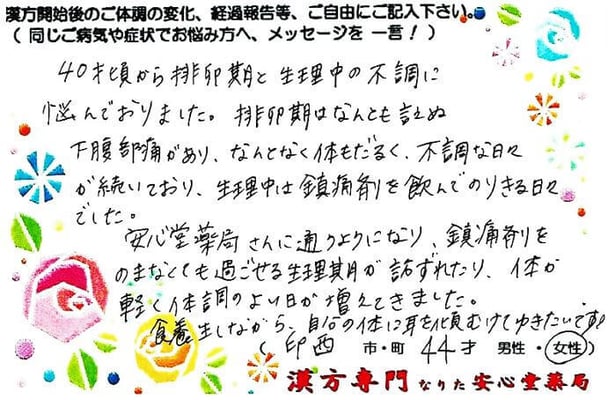 漢方開始後のご体調の変化、経過報告等、ご自由にご記入下さい。
（ 同じご病気や症状でお悩み方へ、メッセージを 一言！）
40才頃から排卵期と生理中の不調に
悩んでおりました。排卵期はなんとも言えぬ
下腹部痛があり、なんとなく体もだるく、不調な日々
が続いており、生理中は鎮痛剤を飲んでのりきる日々
でした。
安心堂薬局さんに通うようになり、鎮痛剤を
のまなくても過ごせる生理期が訪ずれたり、体が
軽く体調のよい日が増えてきました。
食養生しながら、自分の体に耳を傾むけてゆきたいです。
（ 印西 市・町 44才 男性・女性）
漢方専門 なりた 安心堂薬局